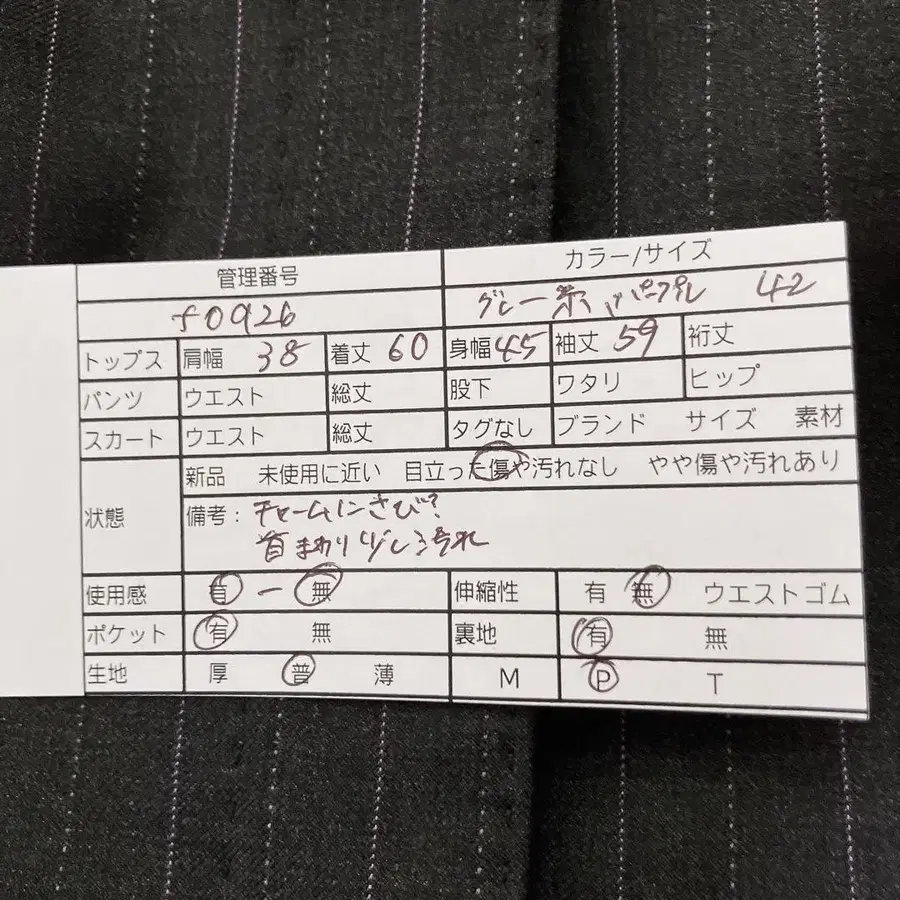 管理番号 カラー/サイズ
f0926 グレー系 パープル 42
トップス 肩幅 38 着丈 60 身幅 45 袖丈 59 裄丈
パンツ ウエスト 総丈 股下 ワタリ ヒップ
スカート ウエスト 総丈 タグなし ブランド サイズ 素材
状態 新品 未使用に近い 目立った傷や汚れなし やや傷や汚れあり
備考: チャームノンさび?
首まわり少し汚れ
使用感 有 ー 無 伸縮性 有 無 ウエストゴム
ポケット 有 無 裏地 有 無
生地 厚 普 薄 M P T